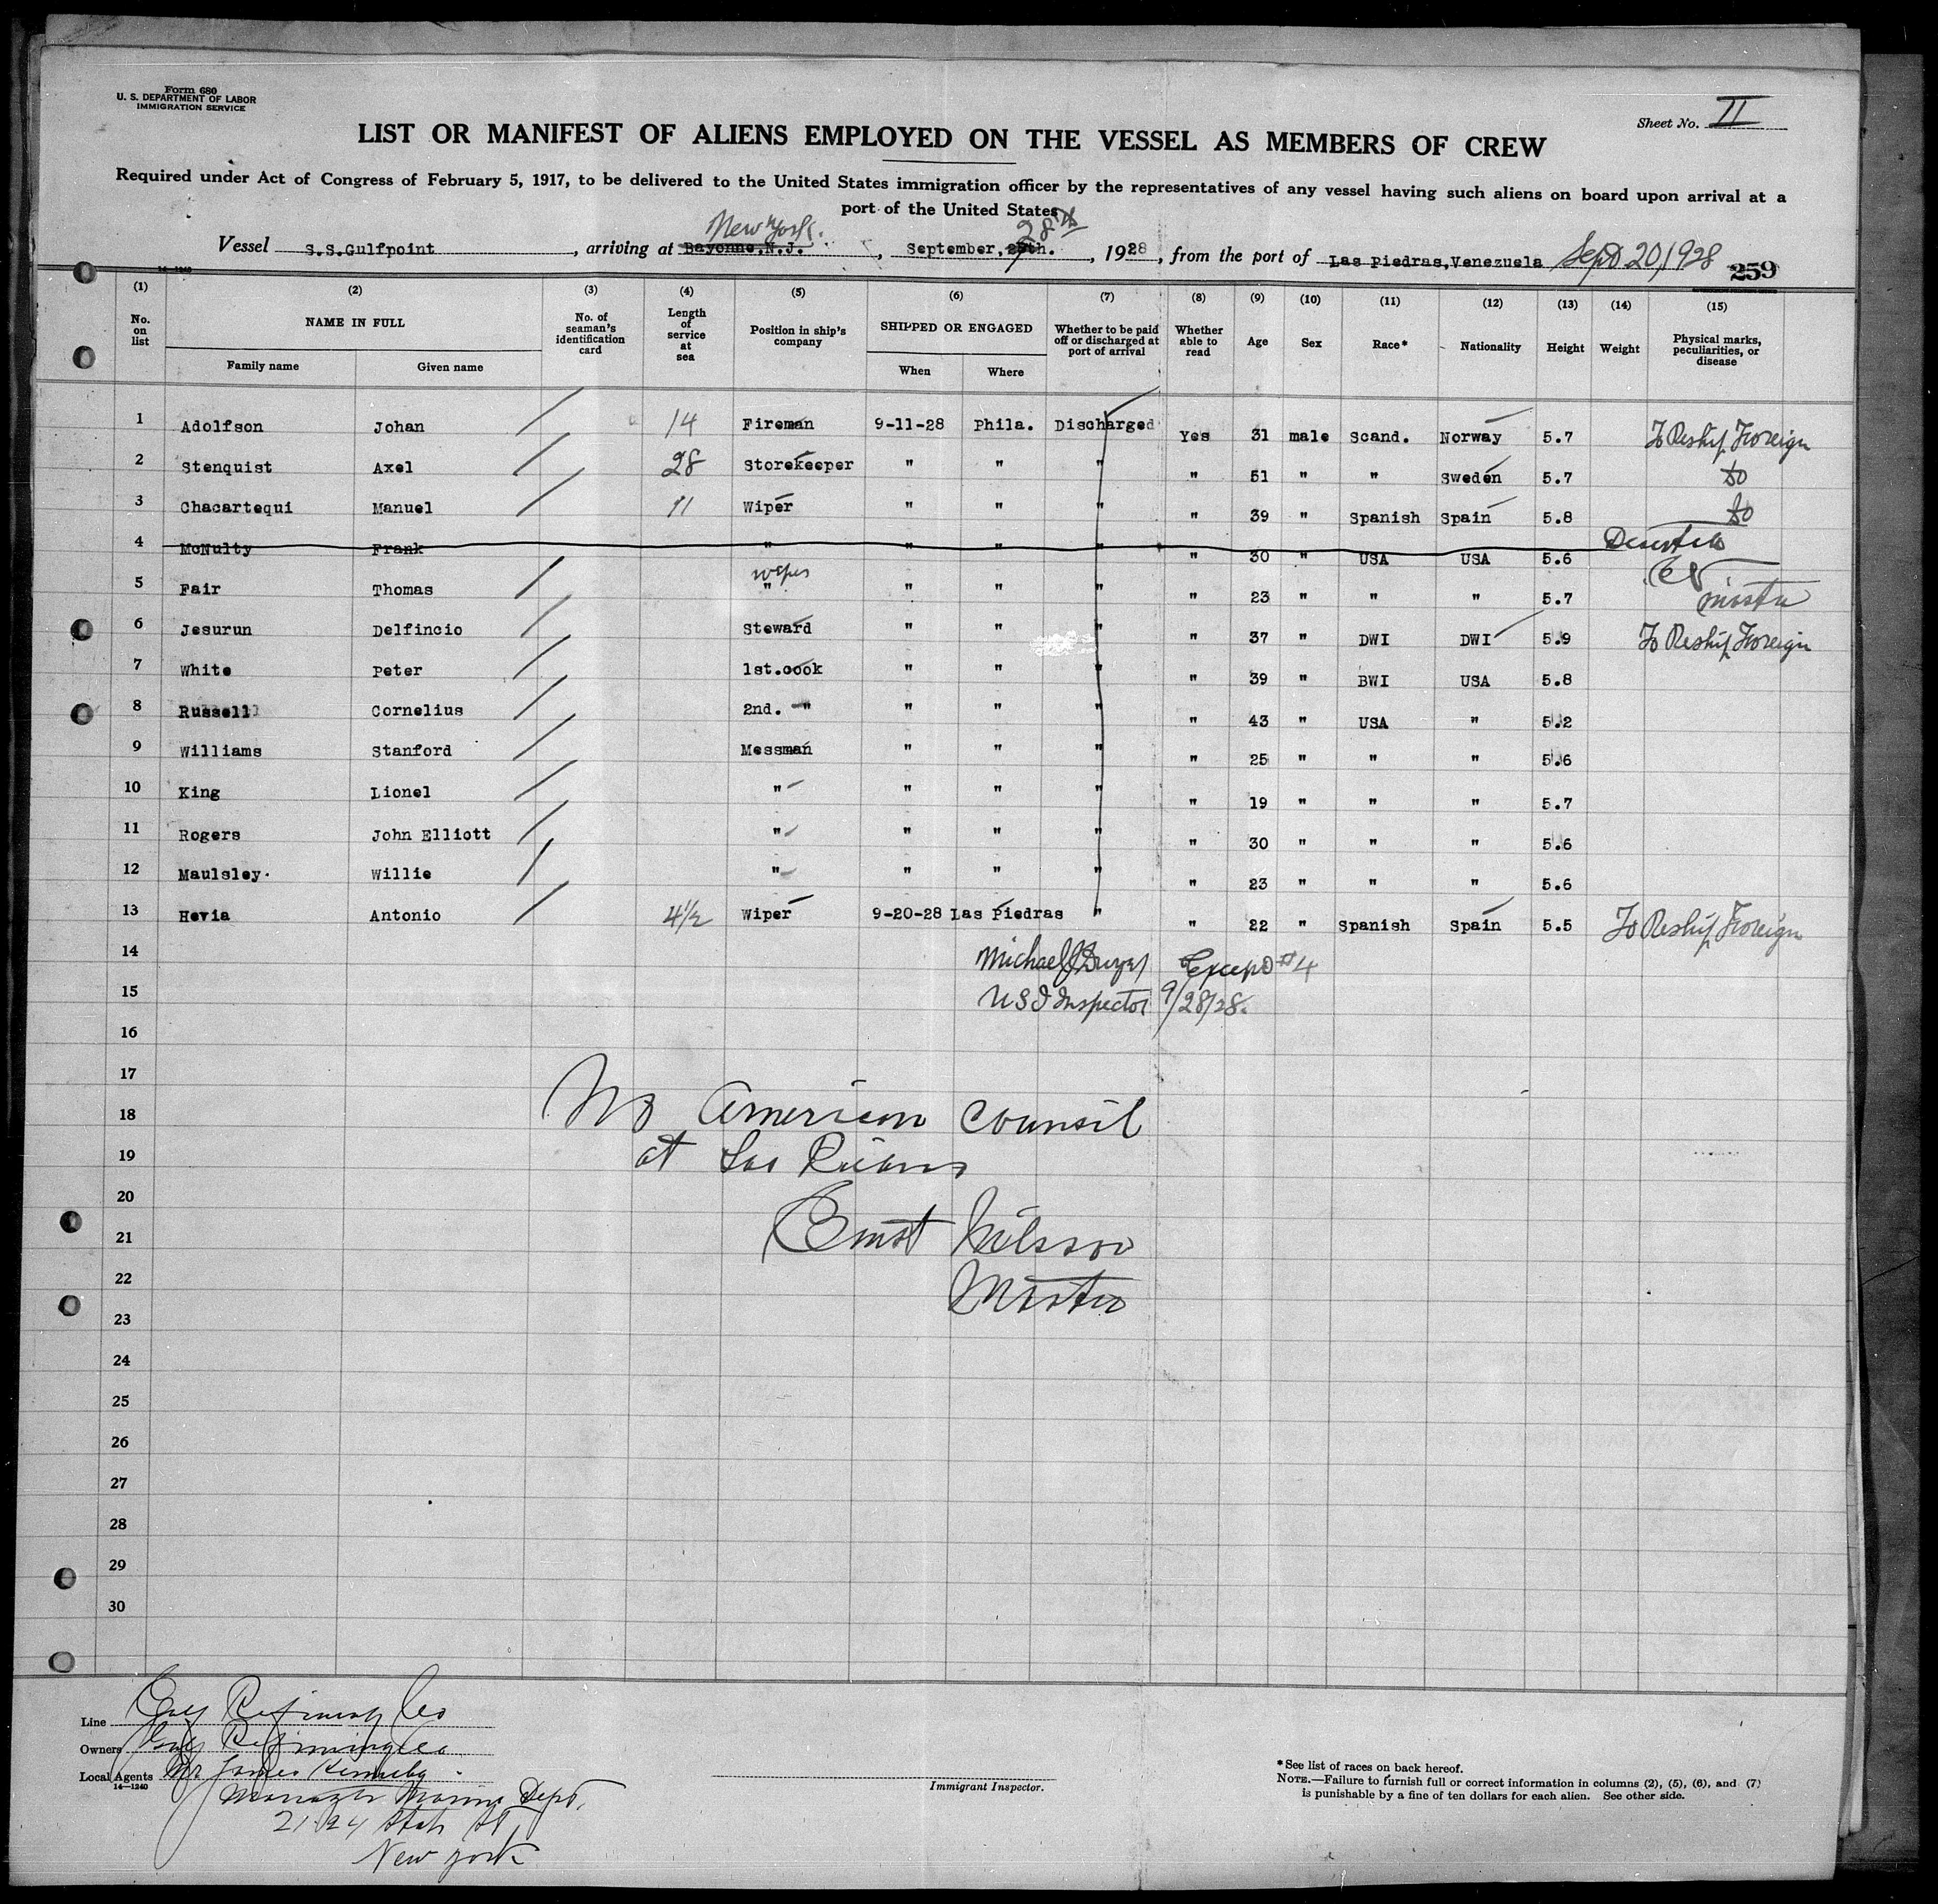 Form 680
U. S. DEPARTMENT OF LABOR
IMMIGRATION SERVICE
Sheet No. II
LIST OR MANIFEST OF ALIENS EMPLOYED ON THE VESSEL AS MEMBERS OF CREW
Required under Act of Congress of February 5, 1917, to be delivered to the United States immigration officer by the representatives of any vessel having such aliens on board upon arrival at a
port of the United States
New York. 28th
Vessel S.S.Gulfpoint, arriving at Bayonne,N.J., September, th., 1928, from the port of Las Piedras,Venezuela Sept 20/1928
14-1240 259
(1) (2) (3) (4) (5) (6) (7) (8) (9) (10) (11) (12) (13) (14) (15)
No. on list NAME IN FULL Family name Given name No. of seaman's identification card Length of service at sea Position in ship's company SHIPPED OR ENGAGED When Where Whether to be paid off or discharged at port of arrival Whether able to read Age Sex Race* Nationality Height Weight Physical marks, peculiarities, or disease
1 Adolfson Johan 14 Fireman 9-11-28 Phila. Discharged Yes 31 male Scand. Norway 5.7 To Reship Foreign
2 Stenquist Axel 28 Storekeeper " " " " 51 " " Sweden 5.7 do
3 Chacartequi Manuel 11 Wiper " " " " 39 " Spanish Spain 5.8 do
4 McNulty Frank " " " " " 30 " USA USA 5.6 Deserted
5 Fair Thomas wiper " " " " " 23 " " " 5.7 EN Master
6 Jesurun Delfincio Steward " " " " 37 " DWI DWI 5.9 To Reship Foreign
7 White Peter 1st.cook " " " " 39 " BWI USA 5.8
8 Russell Cornelius 2nd. " " " " " 43 " USA " 5.2
9 Williams Stanford Messman " " " " 25 " " " 5.6
10 King Lionel " " " " " 19 " " " 5.7
11 Rogers John Elliott " " " " " 30 " " " 5.6
12 Maulsley. Willie " " " " " 23 " " " 5.6
13 Hevia Antonio 4½ Wiper 9-20-28 Las Piedras " " 22 " Spanish Spain 5.5 To Reship Foreign
14 Michael J Except #4
15 U S I Inspector 9/28/28.
16
17
18 No American Counsil
19 at Las
20
21 Ernst Nilsson
22 Master
23
24
25
26
27
28
29
30
Line Gulf Refining Co
Owners Gulf Refining Co
Local Agents Mr. James
14-1240
Manager Marine Dept,
21-24 State St,
New York
Immigrant Inspector.
*See list of races on back hereof.
NOTE.—Failure to furnish full or correct information in columns (2), (5), (6), and (7)
is punishable by a fine of ten dollars for each alien. See other side.